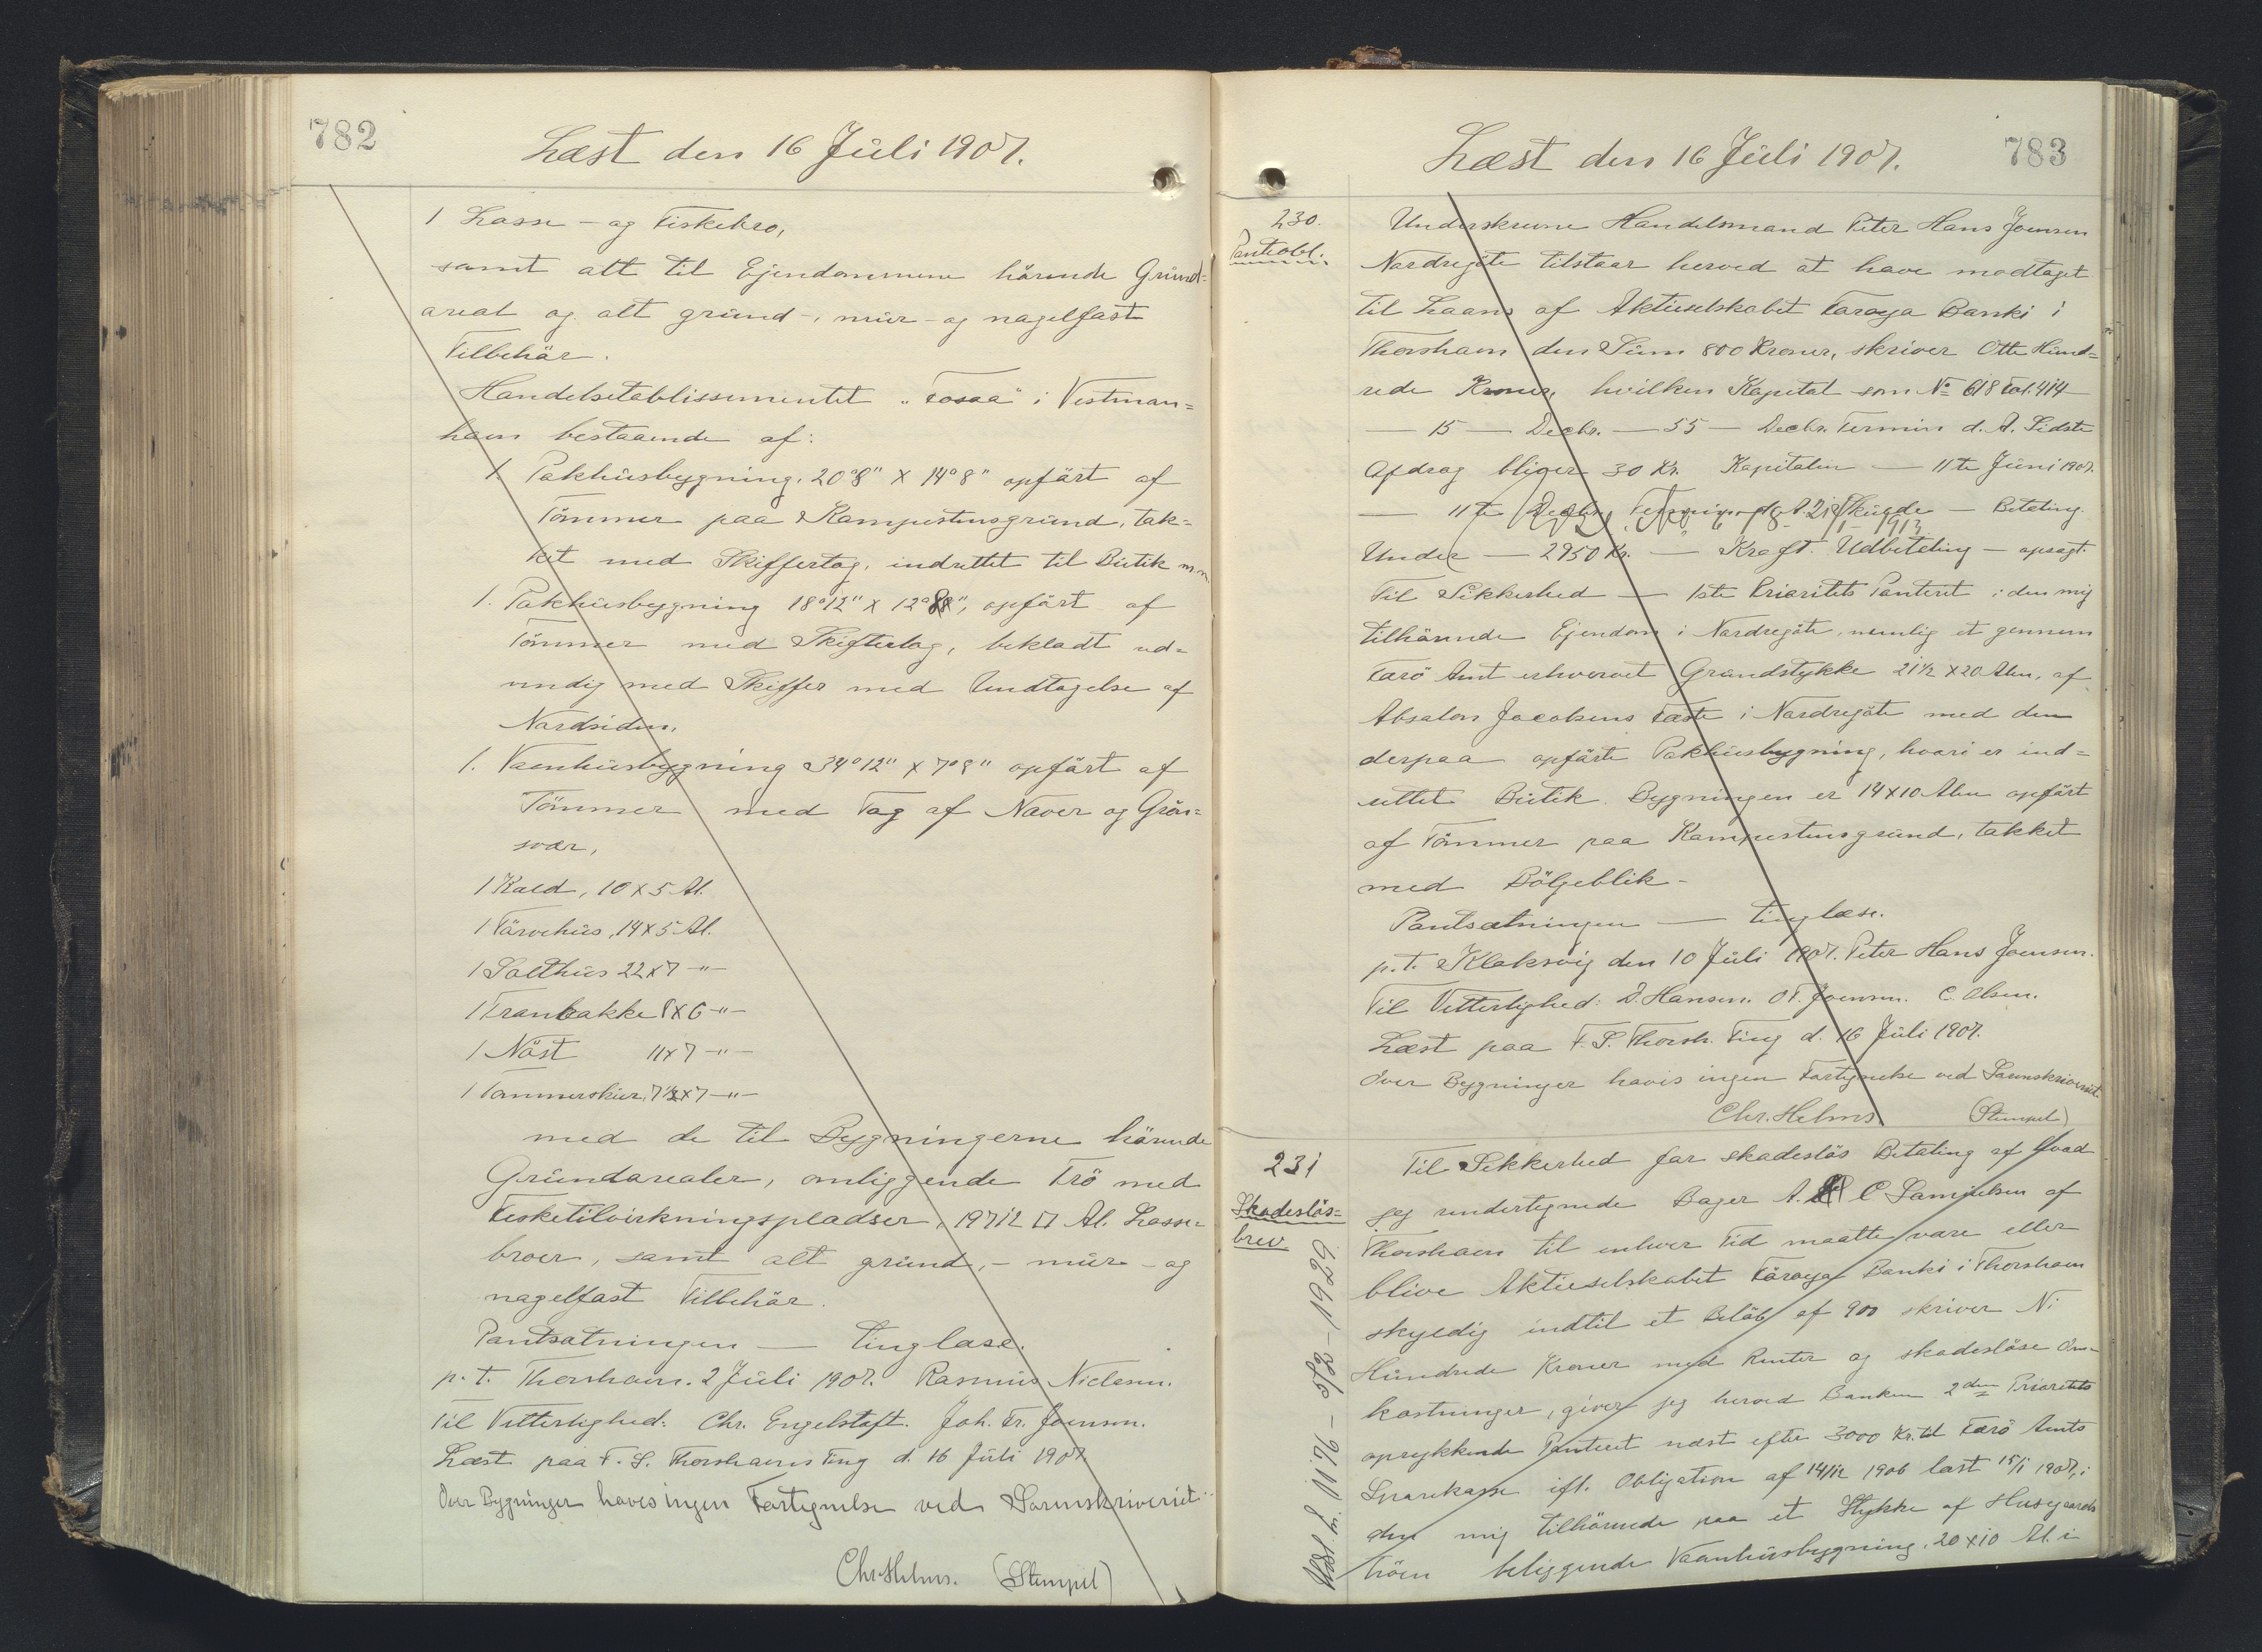 782
Læst den 16 Júli 1907.
1 Losse- og Fiskebro,
samt alt til Ejendommene hörende Grúnd=
areal og alt grúnd-, múr- og nagelfast
Tilbehör.
Handelsetablissementet "Fossá" i Vestman=
havn bestaaende af:
1. Pakhúsbygning. 20°8" x 14°8" opfört af
Tömmer paa Kampestensgrúnd, tæk=
ket med Skiffertag, indrettet til Bútik m.m.
1. Pakhúsbygning 18°12" x 12°8", opfört af
Tömmer med Skiffertag, beklædt ud=
vendig med Skiffer med Undtagelse af
Nordsiden,
1. Vaanhúsbygning 34°12" x 7°8" opfört af
Tömmer med Tag af Næver og Grön=
svær,
1 Kald, 10 x 5 Al.
1 Törvehús, 14 x 5 Al.
1 Salthús 22 x 7 -"-
1 Tranbakke 8 x 6 -"-
1 Nöst 11 x 7 -"-
1 Tömmerskúr, 7½ x 7 -"-
med de til Bygningerne hörende
Grúndarealer, omliggende Trö med
Fisketilvirkningspladser, 19712 □ Al. Losse=
broer, samt alt grúnd,- múr- og
nagelfast Tilbehör.
Pantsætningen — tinglæse.
p. t. Thorshavn. 2 Júli 1907. Rasmús Niclasen.
Til Vitterlighed: Chr. Engelstoft. Joh. Fr. Joensen.
Læst paa F. S. Thorshavns Ting d. 16 Júli 1907.
Over Bygninger haves ingen Fortegnelse ved Sorenskriveriet.
Chr. Helms. (Stempel)
783
Læst den 16 Júli 1907.
230.
Pantobl.
Underskrevne Handelsmand Peter Hans Joensen
Nordregöte tilstaar herved at have modtaget
til Laans af Aktieselskabet Föroya Banki i
Thorshavn den Súm 800 Kroner, skriver Otte Húnd=
rede Kroner, hvilken Kapital som No 618 Fol. 414
— 15 — Decbr. — 55 — Decbr. Termin d. A. Sidste
Afdrag bliver 30 Kr. Kapitalen — 11te Júni 1907.
— 11te Decbr. Termin d. A. 21 Skyldn — Betaling.
Under — 2950 Kr. — Kraft. Udbetaling — opsagt.
Til Sikkerhed — 1ste Prioritets Panteret i den mig
tilhörende Ejendom i Nordregöte, nemlig et gennem
Færö Amt erhvervet Grúndstykke 21½ x 20 Alen, af
Absalon Jacobsens Fæste i Nordregöte med den
derpaa opförte Pakhúsbygning, hvori er ind=
rettet Bútik. Bygningen er 14 x 10 Alen opfört
af Tömmer paa Kampestensgrúnd, tækket
med Bölgeblik -
Pantsætningen — tinglæse.
p.t. Klaksvig den 10 Júli 1907. Peter Hans Joensen.
Til Vitterlighed: D. Hansen. O F. Joensen. C. Olsen.
Læst paa F. S. Thorsh. Ting d. 16 Júli 1907.
Over Bygninger haves ingen Fortegnelse ved Sorenskriveriet.
Chr. Helms. (Stempel)
231
Skadeslös=
brev
Til Sikkerhed for skadeslös Betaling af hvad
jeg undertegnede Bager A. C Samúelsen af
Thorshavn til enhver Tid maatte være eller
blive Aktieselskabet Föroya Banki i Thorshavn
skyldig indtil et Belöb af 900 skriver Ni
Húndrede Kroner med Renter og skadeslöse Om-
kostninger, giver jeg herved Banken 2den Prioritets
oprykkende Panteret næst efter 3000 Kr. til Færö Amts
Sparekasse ifl. Obligation af 14/12 1906 læst 15/1 1907, i
den mig tilhörende paa et Stykke af Húsegaards
tröen beliggende Vaanhúsbygning, 20 x 10 Al. i